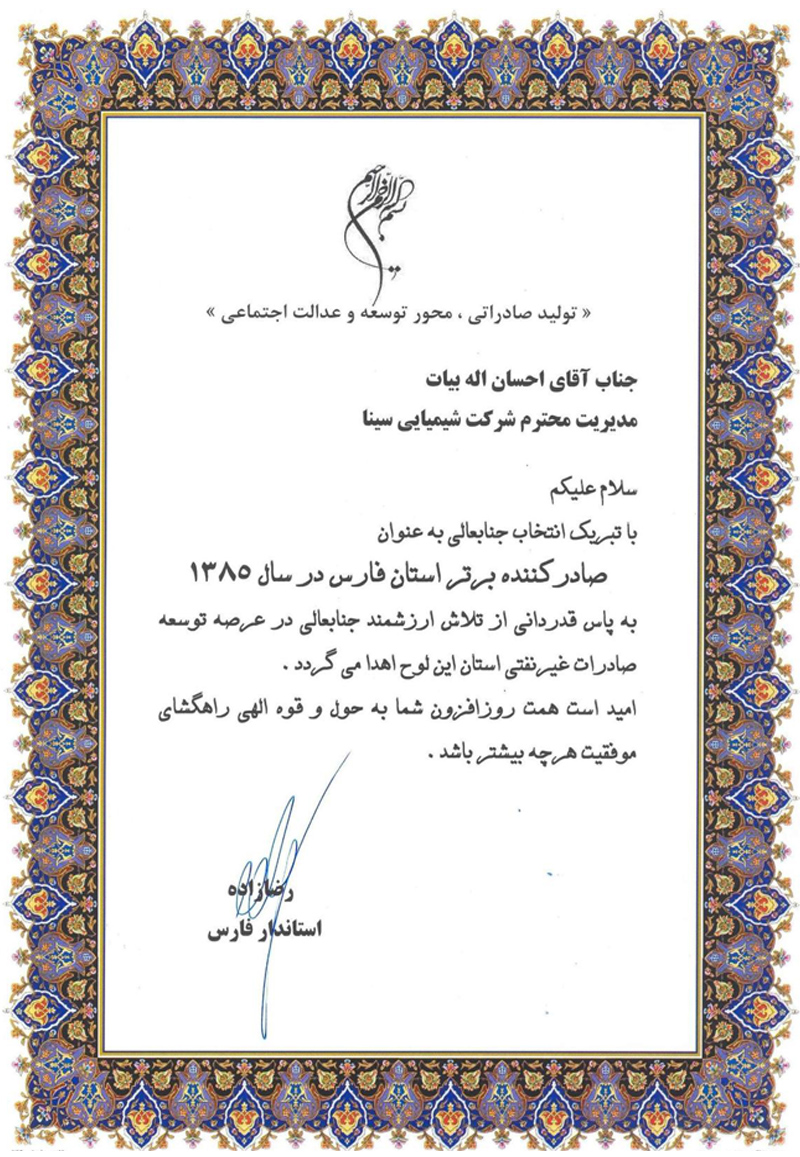 بسم الله الرحمن الرحیم
« تولید صادراتی ، محور توسعه و عدالت اجتماعی »
جناب آقای احسان اله بیات
مدیریت محترم شرکت شیمیایی سینا
سلام علیکم
با تبریک انتخاب جنابعالی به عنوان
صادرکننده برتر استان فارس در سال ۱۳۸۵
به پاس قدردانی از تلاش ارزشمند جنابعالی در عرصه توسعه
صادرات غیرنفتی استان این لوح اهدا می گردد .
امید است همت روزافزون شما به حول و قوه الهی راهگشای
موفقیت هرچه بیشتر باشد .
رضازاده
استاندار فارس